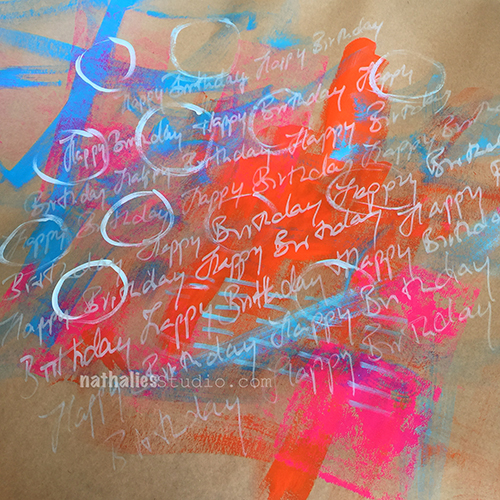 Happy Birthday Happy Birthday
Happy Birthday Happy Birthday Happy
Birthday Happy Birthday Happy Birthday
Happy Birthday Happy Birthday Happy Birthday
Birthday Happy Birthday Happy Birthday
Happy Birthday Happy Birthday Happy B
Birthday Happy Birthday Happy Birthday
Happy Birthday Happy Birthday
nathaliesstudio.com
Happy Birthday